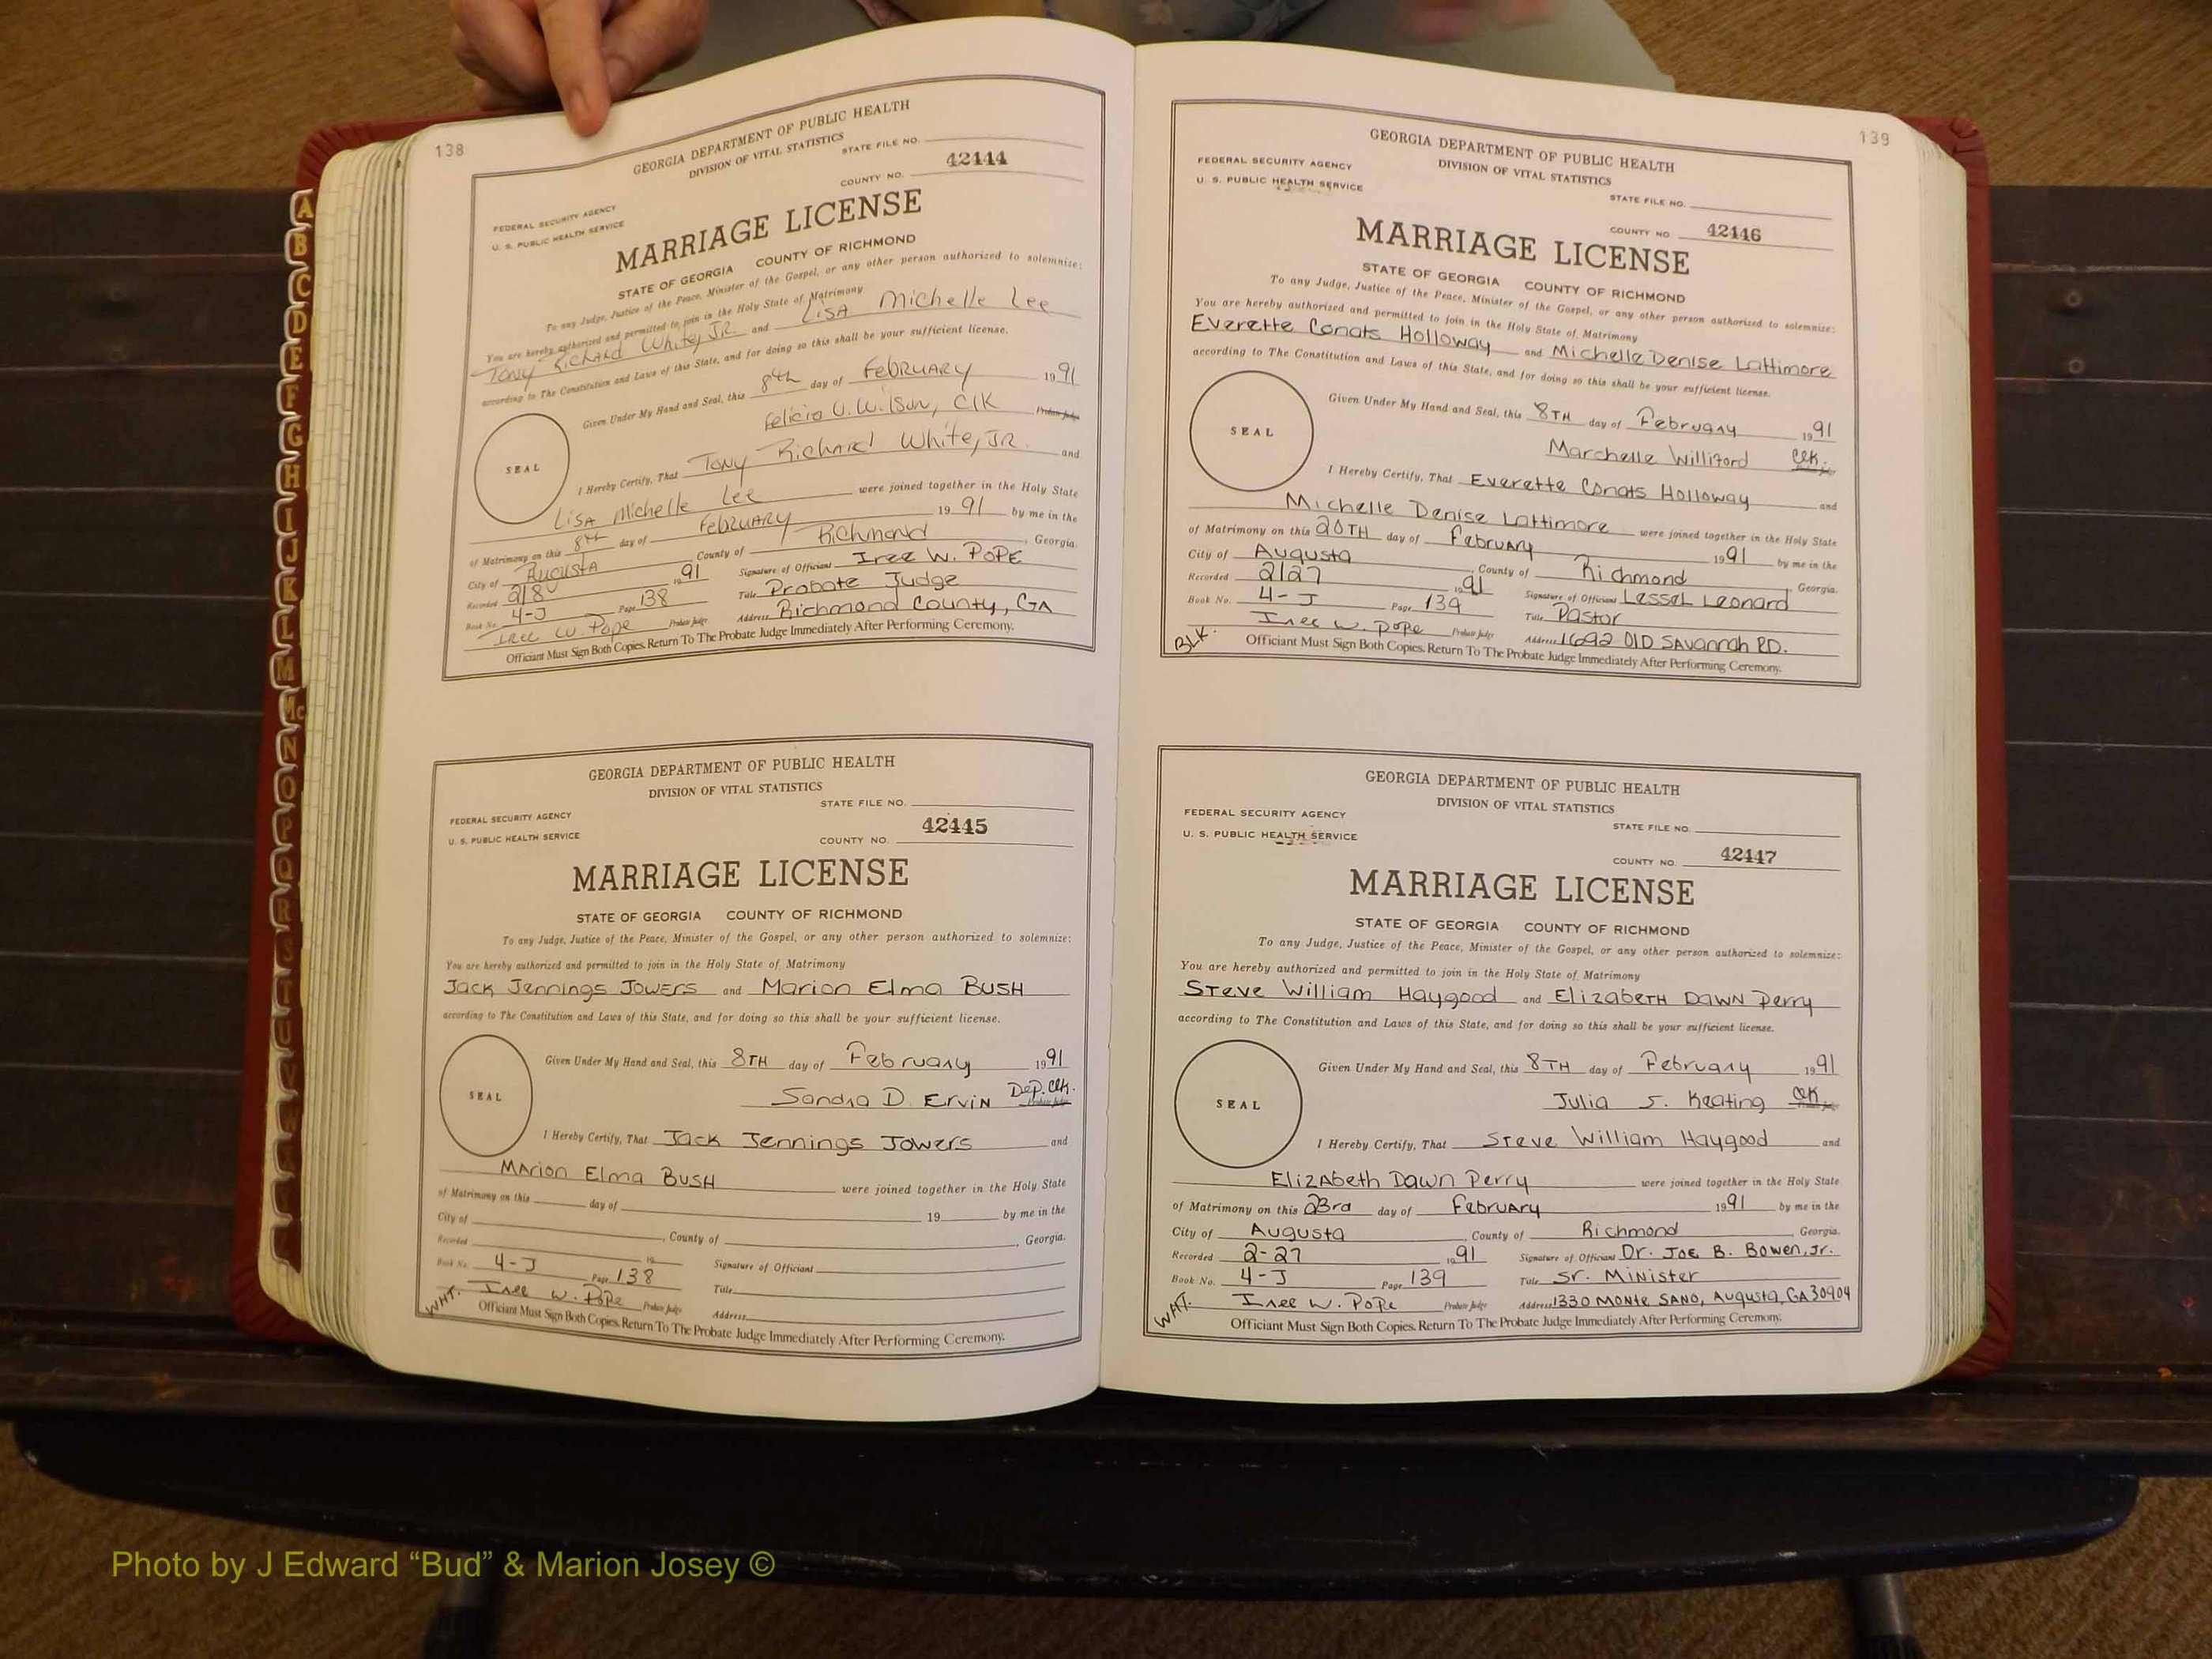 138
GEORGIA DEPARTMENT OF PUBLIC HEALTH
DIVISION OF VITAL STATISTICS
STATE FILE NO.
42444
COUNTY NO.
FEDERAL SECURITY AGENCY
U. S. PUBLIC HEALTH SERVICE
MARRIAGE LICENSE
STATE OF GEORGIA COUNTY OF RICHMOND
To any Judge, Justice of the Peace, Minister of the Gospel, or any other person authorized to solemnize:
You are hereby authorized and permitted to join in the Holy State of Matrimony
Tony Richard White, JR. and LiSA Michelle Lee
according to The Constitution and Laws of this State, and for doing so this shall be your sufficient license.
Given Under My Hand and Seal, this 8th day of FebRUARY 1991
Felicia U. Wilson, Clk Probate Judge
SEAL
I Hereby Certify, That Tony Richard White, JR. and
LiSA Michelle Lee were joined together in the Holy State
of Matrimony on this 8th day of FebRUARY 1991 by me in the
City of AugustA County of Richmond, Georgia.
Recorded 2/8 1991 Signature of Officiant Inee W. PoPE
Book No. 4-J Page 138 Title Probate Judge
Inee W. Pope Probate Judge Address Richmond County, GA
Officiant Must Sign Both Copies. Return To The Probate Judge Immediately After Performing Ceremony.
GEORGIA DEPARTMENT OF PUBLIC HEALTH
DIVISION OF VITAL STATISTICS
STATE FILE NO.
FEDERAL SECURITY AGENCY
U. S. PUBLIC HEALTH SERVICE
42445
COUNTY NO.
MARRIAGE LICENSE
STATE OF GEORGIA COUNTY OF RICHMOND
To any Judge, Justice of the Peace, Minister of the Gospel, or any other person authorized to solemnize:
You are hereby authorized and permitted to join in the Holy State of Matrimony
Jack Jennings Jowers and Marion Elma BUSH
according to The Constitution and Laws of this State, and for doing so this shall be your sufficient license.
Given Under My Hand and Seal, this 8TH day of February 1991
Sandra D. ErviN Dep. Clk. Probate Judge
SEAL
I Hereby Certify, That Jack Jennings Jowers and
MArion Elma BUSH were joined together in the Holy State
of Matrimony on this day of 19 by me in the
City of , County of , Georgia.
Recorded 19 Signature of Officiant
Book No. 4-J Page 138 Title
WHT. Inee W. PoPe Probate Judge Address
Officiant Must Sign Both Copies. Return To The Probate Judge Immediately After Performing Ceremony.
139
GEORGIA DEPARTMENT OF PUBLIC HEALTH
DIVISION OF VITAL STATISTICS
FEDERAL SECURITY AGENCY
U. S. PUBLIC HEALTH SERVICE
STATE FILE NO.
COUNTY NO 42446
MARRIAGE LICENSE
STATE OF GEORGIA COUNTY OF RICHMOND
To any Judge, Justice of the Peace, Minister of the Gospel, or any other person authorized to solemnize:
You are hereby authorized and permitted to join in the Holy State of Matrimony
Everette Conats Holloway and Michelle Denise Lattimore
according to The Constitution and Laws of this State, and for doing so this shall be your sufficient license.
Given Under My Hand and Seal, this 8TH day of February 1991
Marchelle Williford Clk.
SEAL
I Hereby Certify, That Everette Conats Holloway and
Michelle Denise Lattimore were joined together in the Holy State
of Matrimony on this 20TH day of February 1991 by me in the
City of Augusta, County of Richmond, Georgia.
Recorded 2/27 1991 Signature of Officiant Lessel Leonard
Book No. 4-J Page 139 Title Pastor
BLK. Inee W. Pope Probate Judge Address 1692 OlD SAvannah RD.
Officiant Must Sign Both Copies. Return To The Probate Judge Immediately After Performing Ceremony.
GEORGIA DEPARTMENT OF PUBLIC HEALTH
DIVISION OF VITAL STATISTICS
FEDERAL SECURITY AGENCY
U. S. PUBLIC HEALTH SERVICE
STATE FILE NO.
COUNTY NO. 42447
MARRIAGE LICENSE
STATE OF GEORGIA COUNTY OF RICHMOND
To any Judge, Justice of the Peace, Minister of the Gospel, or any other person authorized to solemnize:
You are hereby authorized and permitted to join in the Holy State of Matrimony
Steve William Haygood and ElizabeTH DawN Perry
according to The Constitution and Laws of this State, and for doing so this shall be your sufficient license.
Given Under My Hand and Seal, this 8TH day of February 1991
Julia S. Keating Clk
SEAL
I Hereby Certify, That Steve William Haygood and
ElizAbeth Dawn Perry were joined together in the Holy State
of Matrimony on this 23rd day of FebruAry 1991 by me in the
City of Augusta, County of Richmond, Georgia.
Recorded 2-27 1991 Signature of Officiant Dr. Joe B. Bowen, Jr.
Book No. 4-J Page 139 Title Sr. MiNister
WHT. Inee W. PoPe Probate Judge Address 1330 MONte SANO, Augusta, GA 30904
Officiant Must Sign Both Copies. Return To The Probate Judge Immediately After Performing Ceremony.
A
B
C
D
E
F
G
H
I
J
K
L
M
Mc
N
O
P
Q
R
S
T
U
Photo by J Edward “Bud” & Marion Josey ©